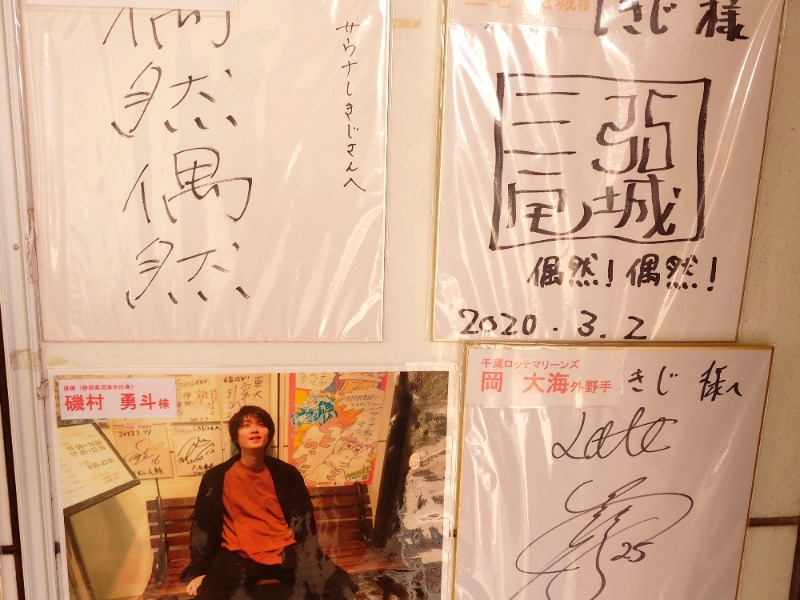 偶
然
偶
然
サウナしきじさんへ
三宅 弘城様
しきじ 様
三宅
弘城
偶然!偶然!
2020.3.2
俳優(静岡県沼津市出身)
磯村 勇斗様
千葉ロッテマリーンズ
岡 大海外野手
きじ 様へ
Lotte
25